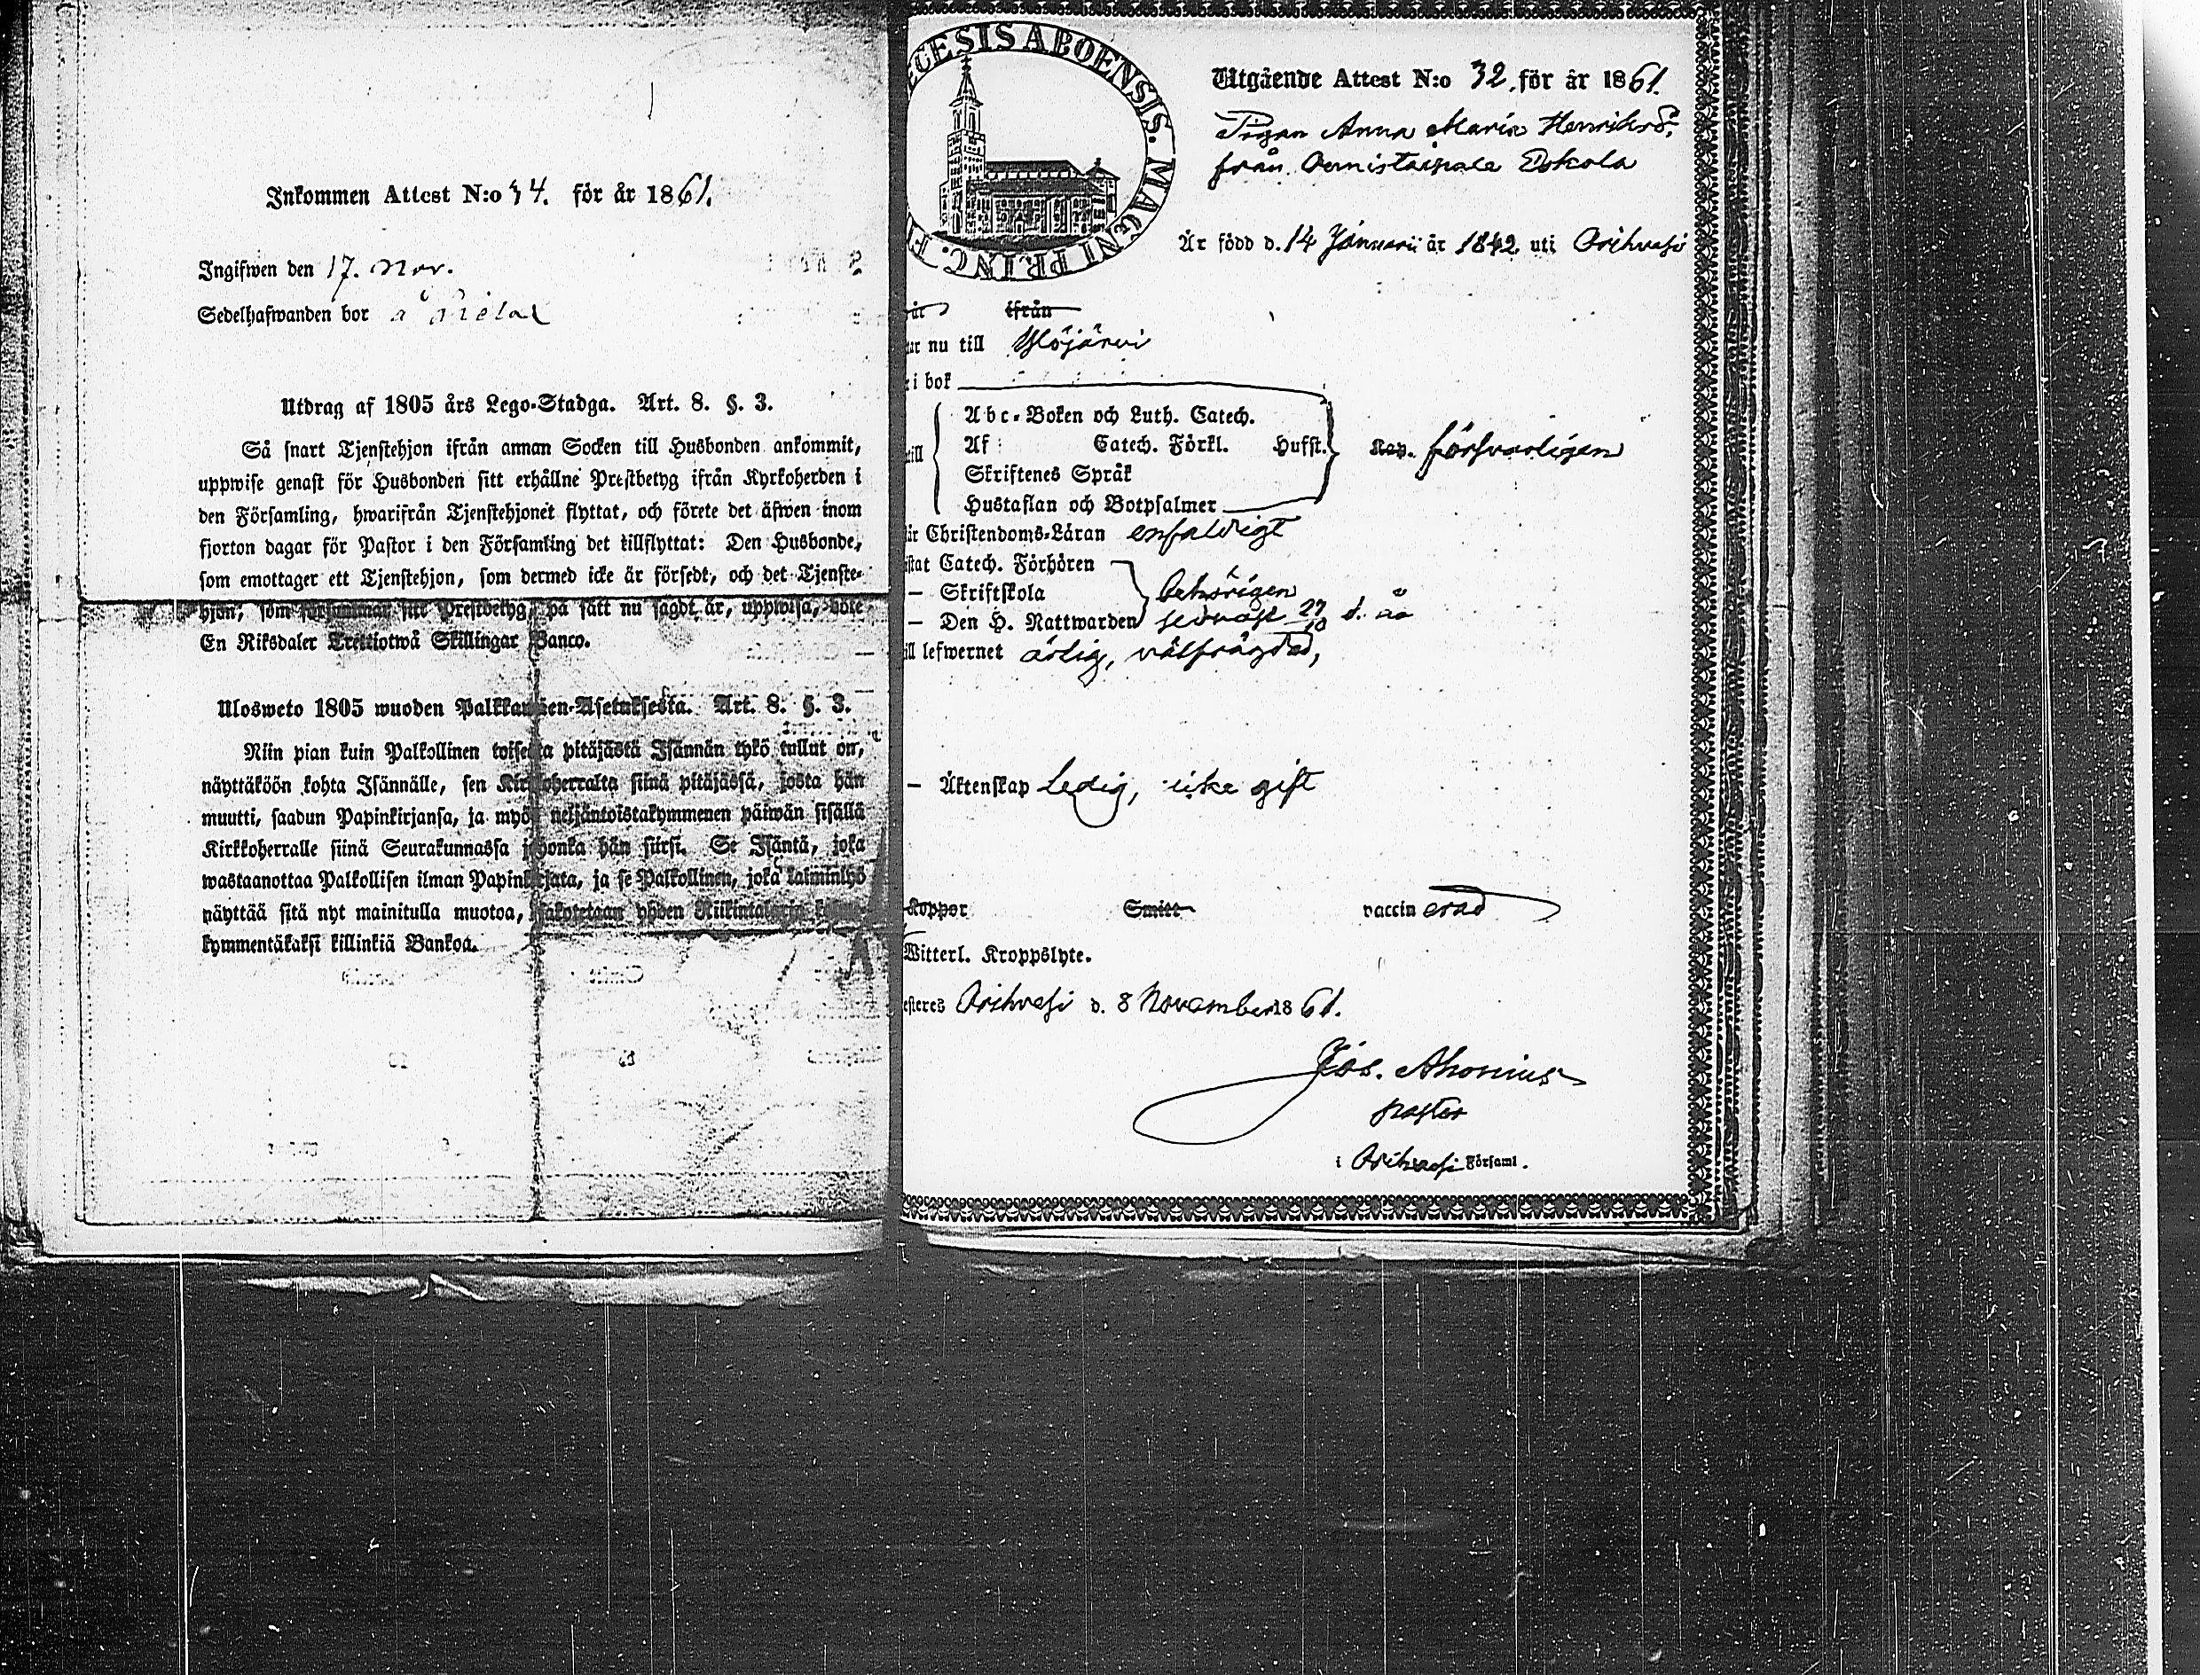 Inkommen Attest N:o 44. för år 1861.
Ingifwen den 17. Nov.
Sedelhafwanden bor å
Utdrag af 1805 års Lego-Stadga. Art. 8. §. 3.
Så snart Tjenstehjon ifrån annan Socken till Husbonden ankommit,
uppwise genast för Husbonden sitt erhållne Prestbetyg ifrån Kyrkoherden i
den Församling, hwarifrån Tjenstehjonet flyttat, och förete det äfwen inom
fjorton dagar för Pastor i den Församling det tillflyttat: Den Husbonde,
som emottager ett Tjenstehjon, som dermed icke är försedt, och det Tjenste-
hjon, som försummar sitt Prestbetyg, på sätt nu sagdt är, uppwisa, böte
En Riksdaler Trettiotwå Skillingar Banco.
Ulosweto 1805 wuoden Palkkausen-Asetuksesta. Art. 8. §. 3.
Niin pian kuin Palkollinen toisesta pitäjästä Isännän tykö tullut on,
näyttäköön kohta Isännälle, sen Kirkkoherralta siinä pitäjässä, josta hän
muutti, saadun Papinkirjansa, ja myös neljäntoistakymmenen päiwän sisällä
Kirkkoherralle siinä Seurakunnassa johonka hän siirsi. Se Isäntä, joka
wastaanottaa Palkollisen ilman Papinkirjata, ja se Palkollinen, joka laiminlyö
näyttää sitä nyt mainitulla muotoa, sakotetaan yhden Riikintalerin
kymmentäkaksi killinkiä Bankoa.
ECESIS ABOENSIS. MAGNI PRINC. F
Utgående Attest N:o 32. för år 1861.
Pigan Anna Maria Henriksd:r
från Oernistaipale Eskola
Är född d. 14 Januarii år 1842 uti Orihvesi
år ifrån
nu till Ylöjärvi
i bok
Abc-Boken och Luth. Catech.
Af Catech. Förkl. Husst. Kap. försvarligen
till
Skriftenes Språk
Hustaflan och Botpsalmer
Christendoms-Läran enfaldigt
Catech. Förhören
— Skriftskola behörigen
— Den H. Nattwarden senast 27/10 d. åå
ill lefwernet ärlig, välfrägdad,
— Äktenskap Ledig, icke gift
Koppor Smitt vaccinerad
Witterl. Kroppslyte.
esteres Orihvesi d. 8 November 1861.
Jos. Ahonius
pastor
i Orihvesi Församl.